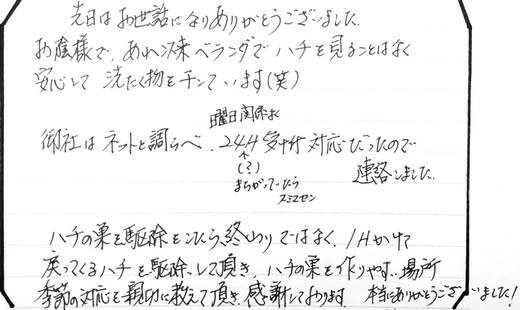 先日はお世話になりありがとうございました。
お陰様で、あれ以来ベランダでハチを見ることはなく
安心して洗たく物を干しています(笑)
曜日関係なく
御社はネットで調らべ、24H受付対応だったので
(?)
まちがっていたら
スミマセン
連絡しました。
ハチの巣を駆除をしたら終わりではなく、1Hかけて
戻ってくるハチを駆除して頂き、ハチの巣を作りやすい場所
季節の対応を親切に教えて頂き感謝しております。本当にありがとうございました!